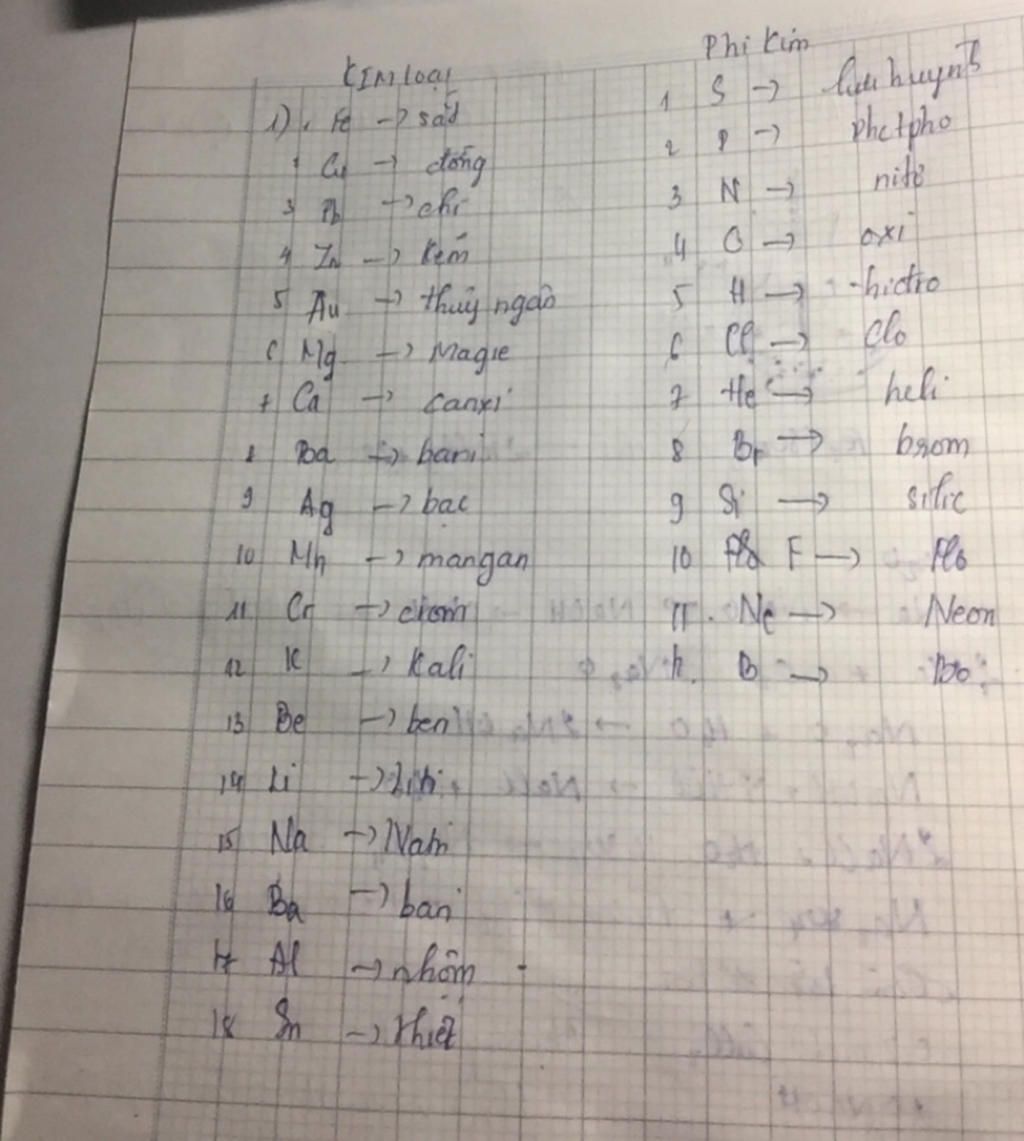 KIM LOẠI
1) . Fe -> sắt
Cu -> đồng
3 Pb -> chì
4 Zn -> kẽm
5 Au -> thuỷ ngân
6 Mg -> Magie
7 Ca -> canxi
8 Ba -> bari
9 Ag -> bạc
10 Mn -> mangan
11 Cr -> crom
12 K -> Kali
13 Be -> beri
14 Li -> Liti
15 Na -> Natri
16 Ba -> bari
17 Al -> nhôm
18 Sn -> thiết
Phi Kim
1 S -> lưu huỳnh
2 P -> Photpho
3 N -> nitơ
4 O -> oxi
5 H -> hidro
6 Cl -> Clo
7 He -> heli
8 Br -> brom
9 Si -> silic
10 F -> Flo
11. Ne -> Neon
12. B -> Bo